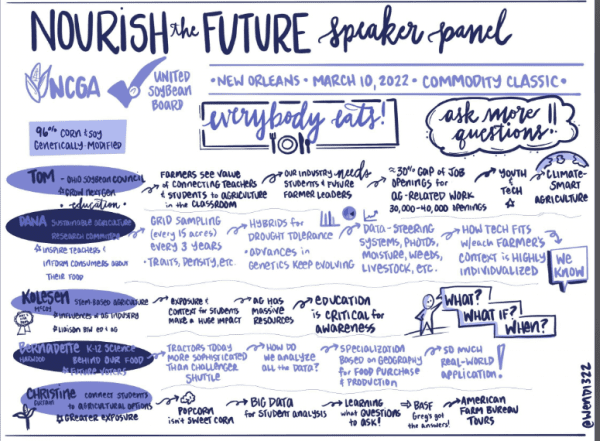 NOURISH the FUTURE speaker panel
NCGA
UNITED
SOYBEAN
BOARD
• NEW ORLEANS • MARCH 10, 2022 • COMMODITY CLASSIC •
96% CORN & SOY
GENETICALLY MODIFIED
everybody eats!
ask more
questions...
TOM - OHIO SOYBEAN COUNCIL
GROW NEXT GEN
• education •
FARMERS SEE VALUE
OF CONNECTING TEACHERS
& STUDENTS TO AGRICULTURE
IN THE CLASSROOM
OUR INDUSTRY needs
STUDENTS & FUTURE
FARMER LEADERS
≈30% GAP OF JOB
OPENINGS FOR
AG-RELATED WORK
30,000-40,000 OPENINGS
YOUTH
&
TECH
CLIMATE-
SMART
AGRICULTURE
DANA SUSTAINABLE AGRICULTURE
RESEARCH COMMITTEE
INSPIRE TEACHERS &
INFORM CONSUMERS ABOUT
THEIR FOOD
GRID SAMPLING
(EVERY 15 ACRES)
EVERY 3 YEARS
• TRAITS, DENSITY, ETC.
HYBRIDS FOR
DROUGHT TOLERANCE
• ADVANCES IN
GENETICS KEEP EVOLVING
DATA - STEERING
SYSTEMS, PHOTOS,
MOISTURE, WEEDS,
LIVESTOCK, ETC.
HOW TECH FITS
W/EACH FARMER'S
CONTEXT IS HIGHLY
INDIVIDUALIZED
WE
KNOW
KOLESEN STEM-BASED AGRICULTURE
McCOY INFLUENCES W/ AG INDUSTRY
LIAISON BTW ED & AG
EXPOSURE &
CONTEXT FOR STUDENTS
MAKE A HUGE IMPACT
AG HAS
MASSIVE
RESOURCES
EDUCATION
IS CRITICAL FOR
AWARENESS
WHAT?
WHAT IF?
WHEN?
BERNADETTE K-12 SCIENCE
BEHIND OUR FOOD
FUTURE VOTERS
TRACTORS TODAY
MORE SOPHISTICATED
THAN CHALLENGER
SHUTTLE
HOW DO
WE ANALYZE
ALL THE DATA?
SPECIALIZATION
BASED ON GEOGRAPHY
FOR FOOD PURCHASE
& PRODUCTION
SO MUCH
REAL-WORLD
APPLICATION!
CHRISTINE CONNECT STUDENTS
TO AGRICULTURAL OPTIONS
GREATER EXPOSURE
POPCORN
ISN'T SWEET CORN
BIG DATA
FOR STUDENT ANALYSIS
LEARNING
WHAT QUESTIONS
TO ASK!
BASF
GREG'S GOT
THE ANSWERS!
AMERICAN
FARM BUREAU
TOURS
@WENDI322